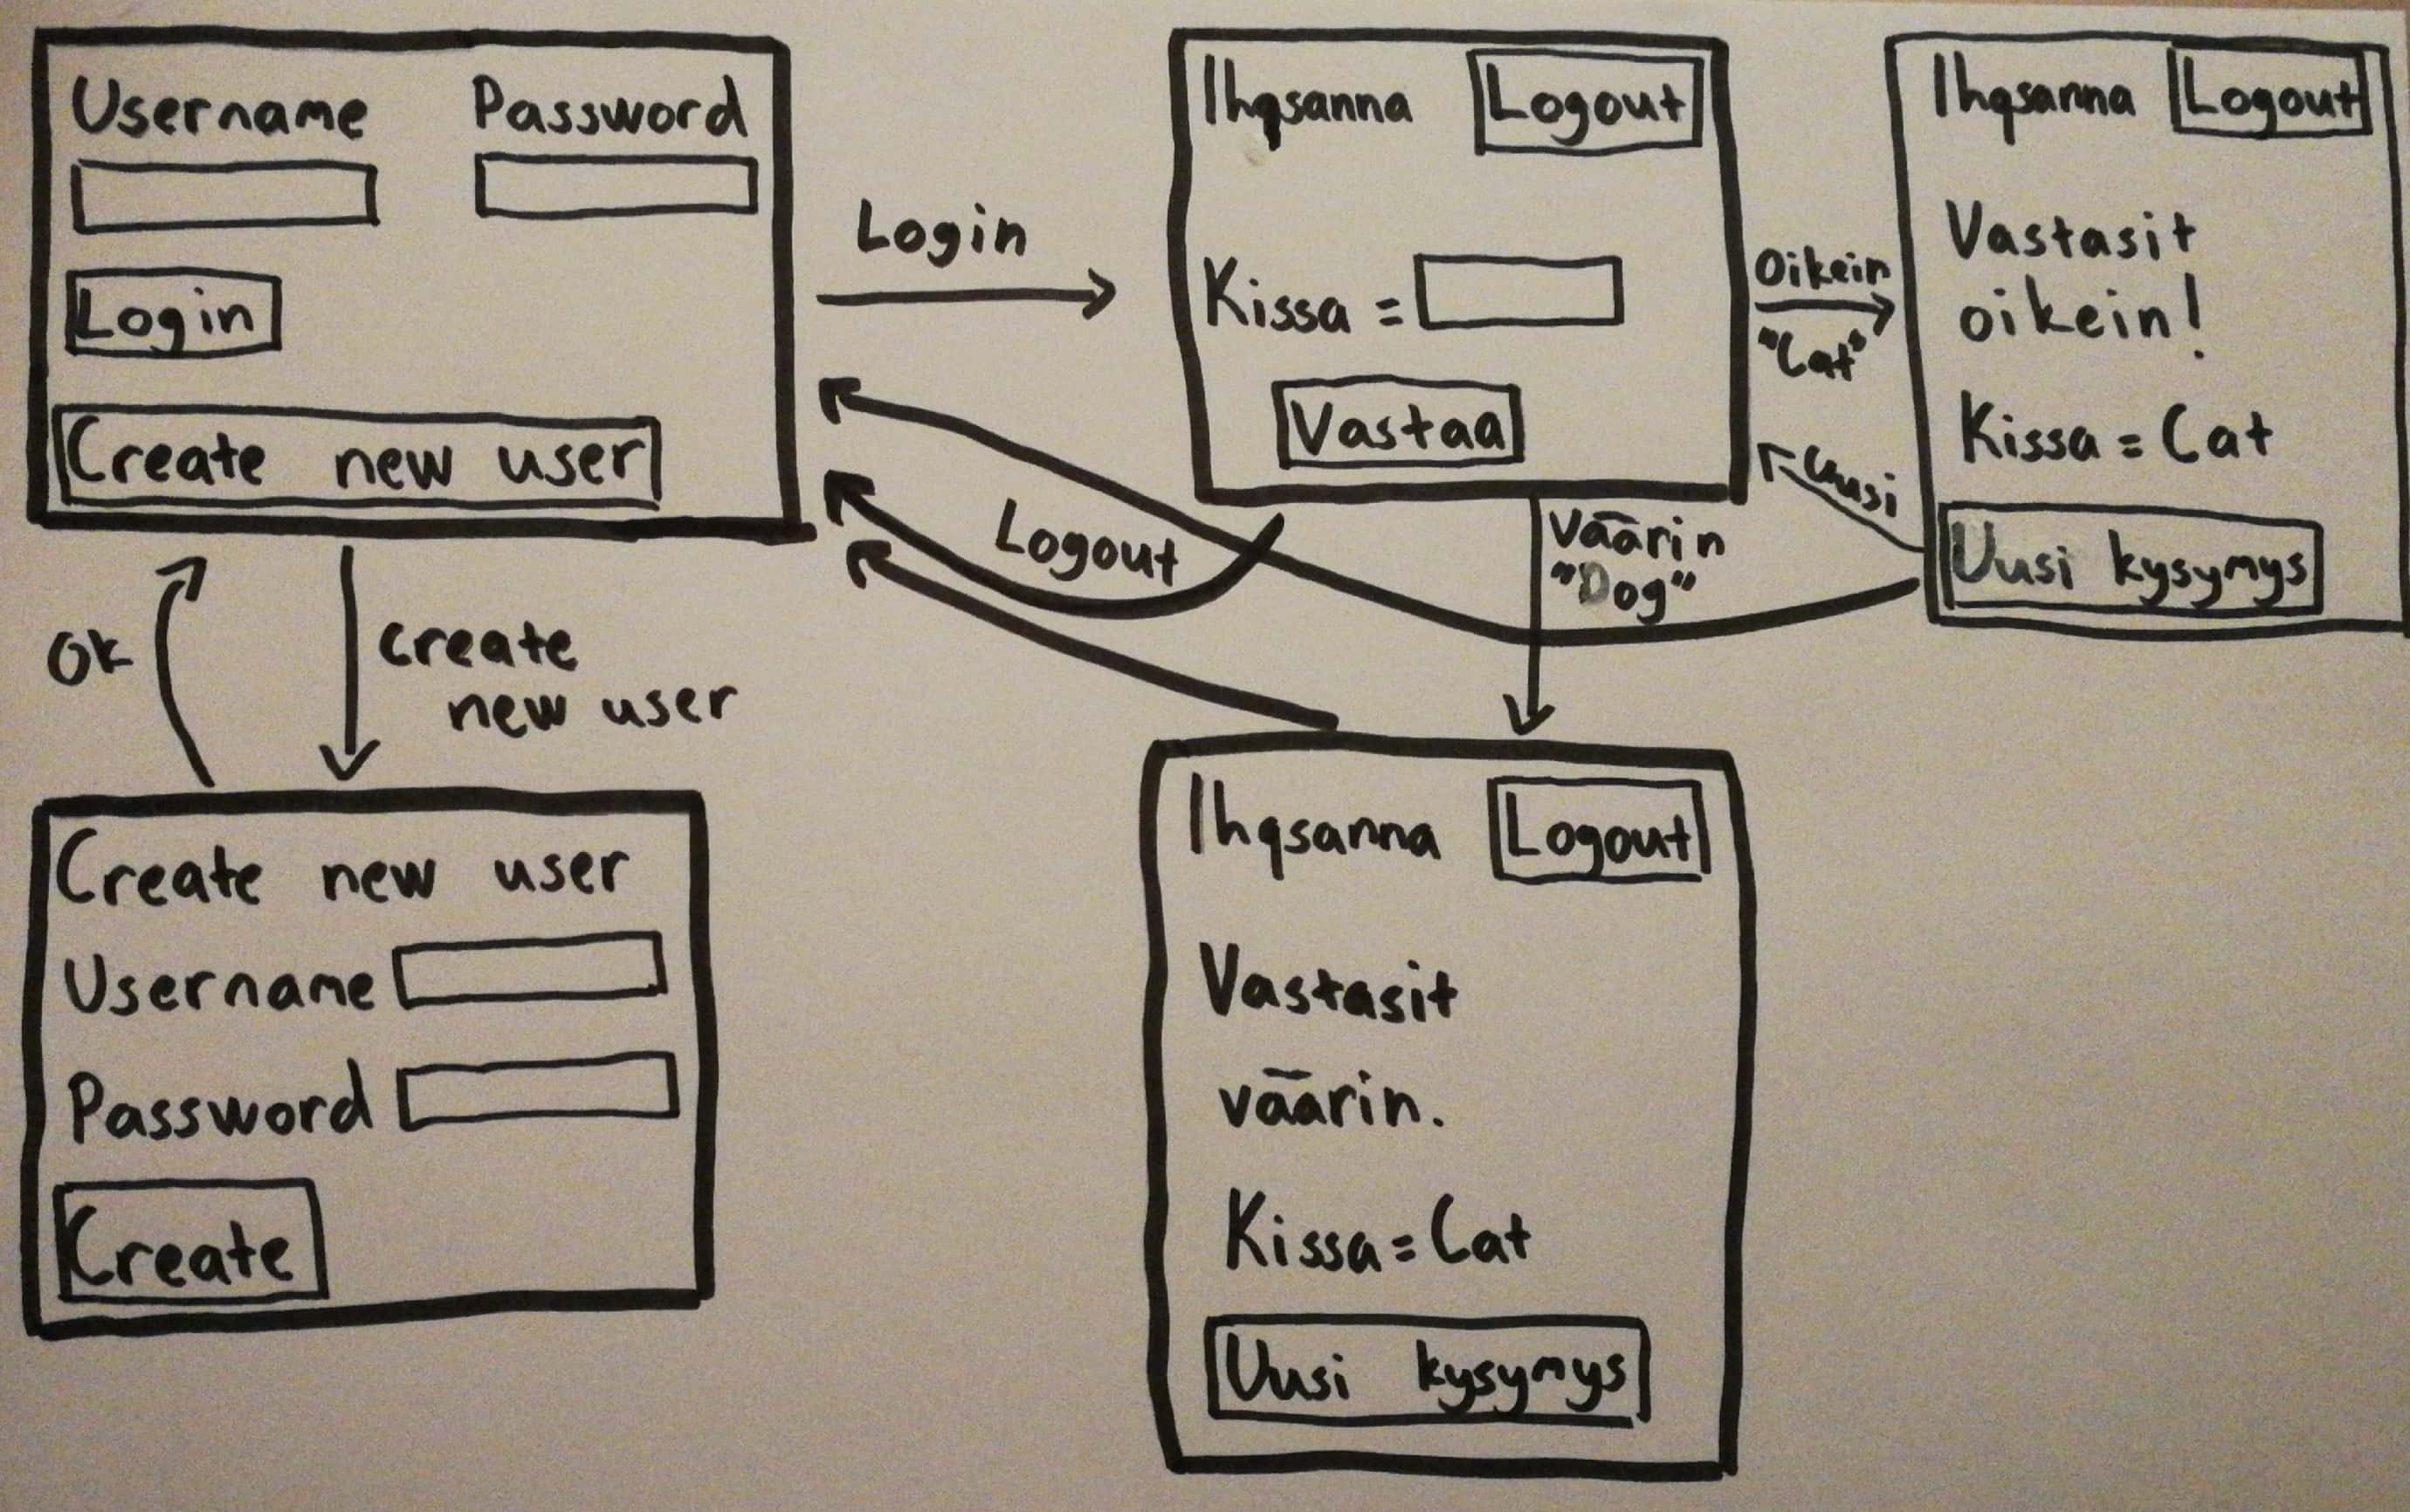 Username Password
Login
Create new user
Login
Ihqsanna Logout
Kissa =
Vastaa
Oikein
"Cat"
Ihqsanna Logout
Vastasit
oikein!
Kissa = Cat
Uusi kysymys
Uusi
Logout
Väärin
"Dog"
OK
Create
new user
Create new user
Username
Password
Create
Ihqsanna Logout
Vastasit
väärin.
Kissa = Cat
Uusi kysymys